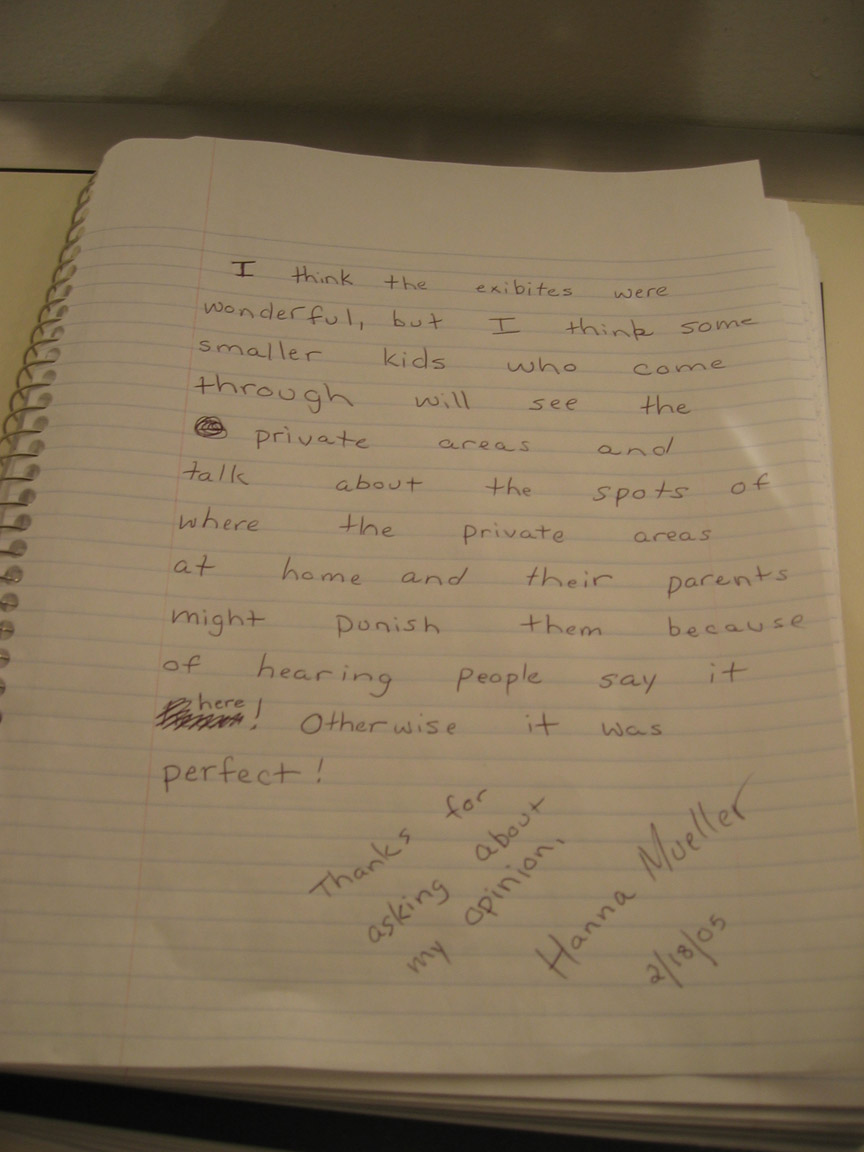 I think the exibites were
wonderful, but I think some
smaller kids who come
through will see the
private areas and
talk about the spots of
where the private areas
at home and their parents
might punish them because
of hearing people say it
here! Otherwise it was
perfect!
Thanks for
asking about
my opinion,
Hanna Mueller
2/18/05